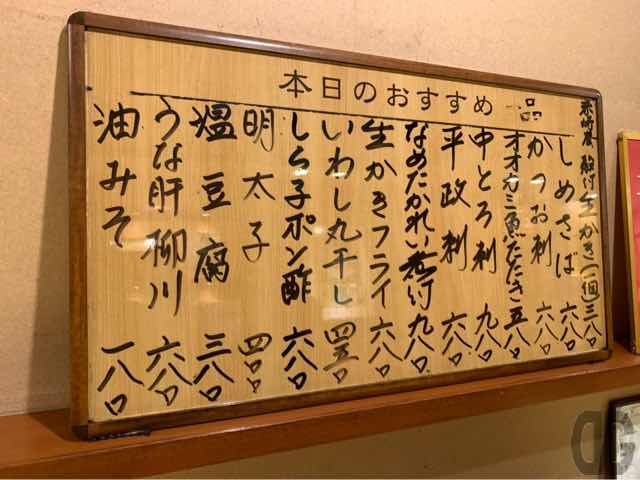 本日のおすすめ一品
赤崎産 殻付生かき(一個) 三八〇
しめさば 六八〇
かつお刺 六八〇
オオカミ魚たたき 五八〇
中とろ刺 九八〇
平政刺 六八〇
なめたかれい煮付 九八〇
生かきフライ 六八〇
いわし丸干し 四五〇
しら子ポン酢 六八〇
明太子 四〇〇
温豆腐 三八〇
うな肝柳川 六八〇
油みそ 一八〇
DG